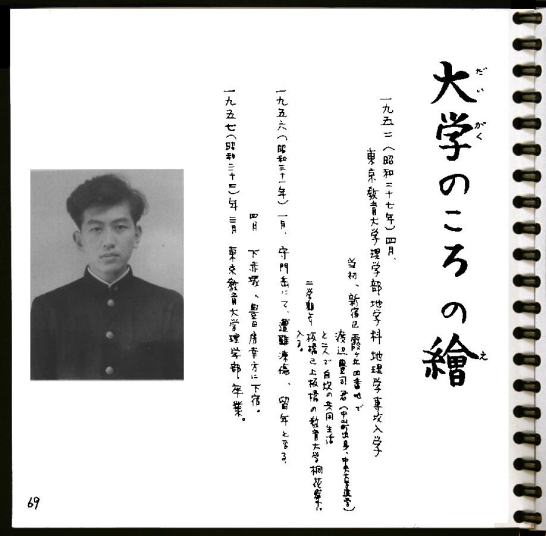 大学のころの繪
だいがく
え
一九五二(昭和二十七年)四月、
東京教育大学理学部地学科地理学専攻入学
当初、新宿区霞ヶ丘四番地で
渡辺豊司君
と二人で自炊の共同生活
二学期より板橋区上板橋の教育大学桐花寮に
入る。
一九五六(昭和三十一年)一月、守門岳にて、遭難凍傷、留年となる。
四月 下赤塚、豊田彦幸方に下宿。
一九五七(昭和三十二)年三月 東京教育大学理学部卒業。
69